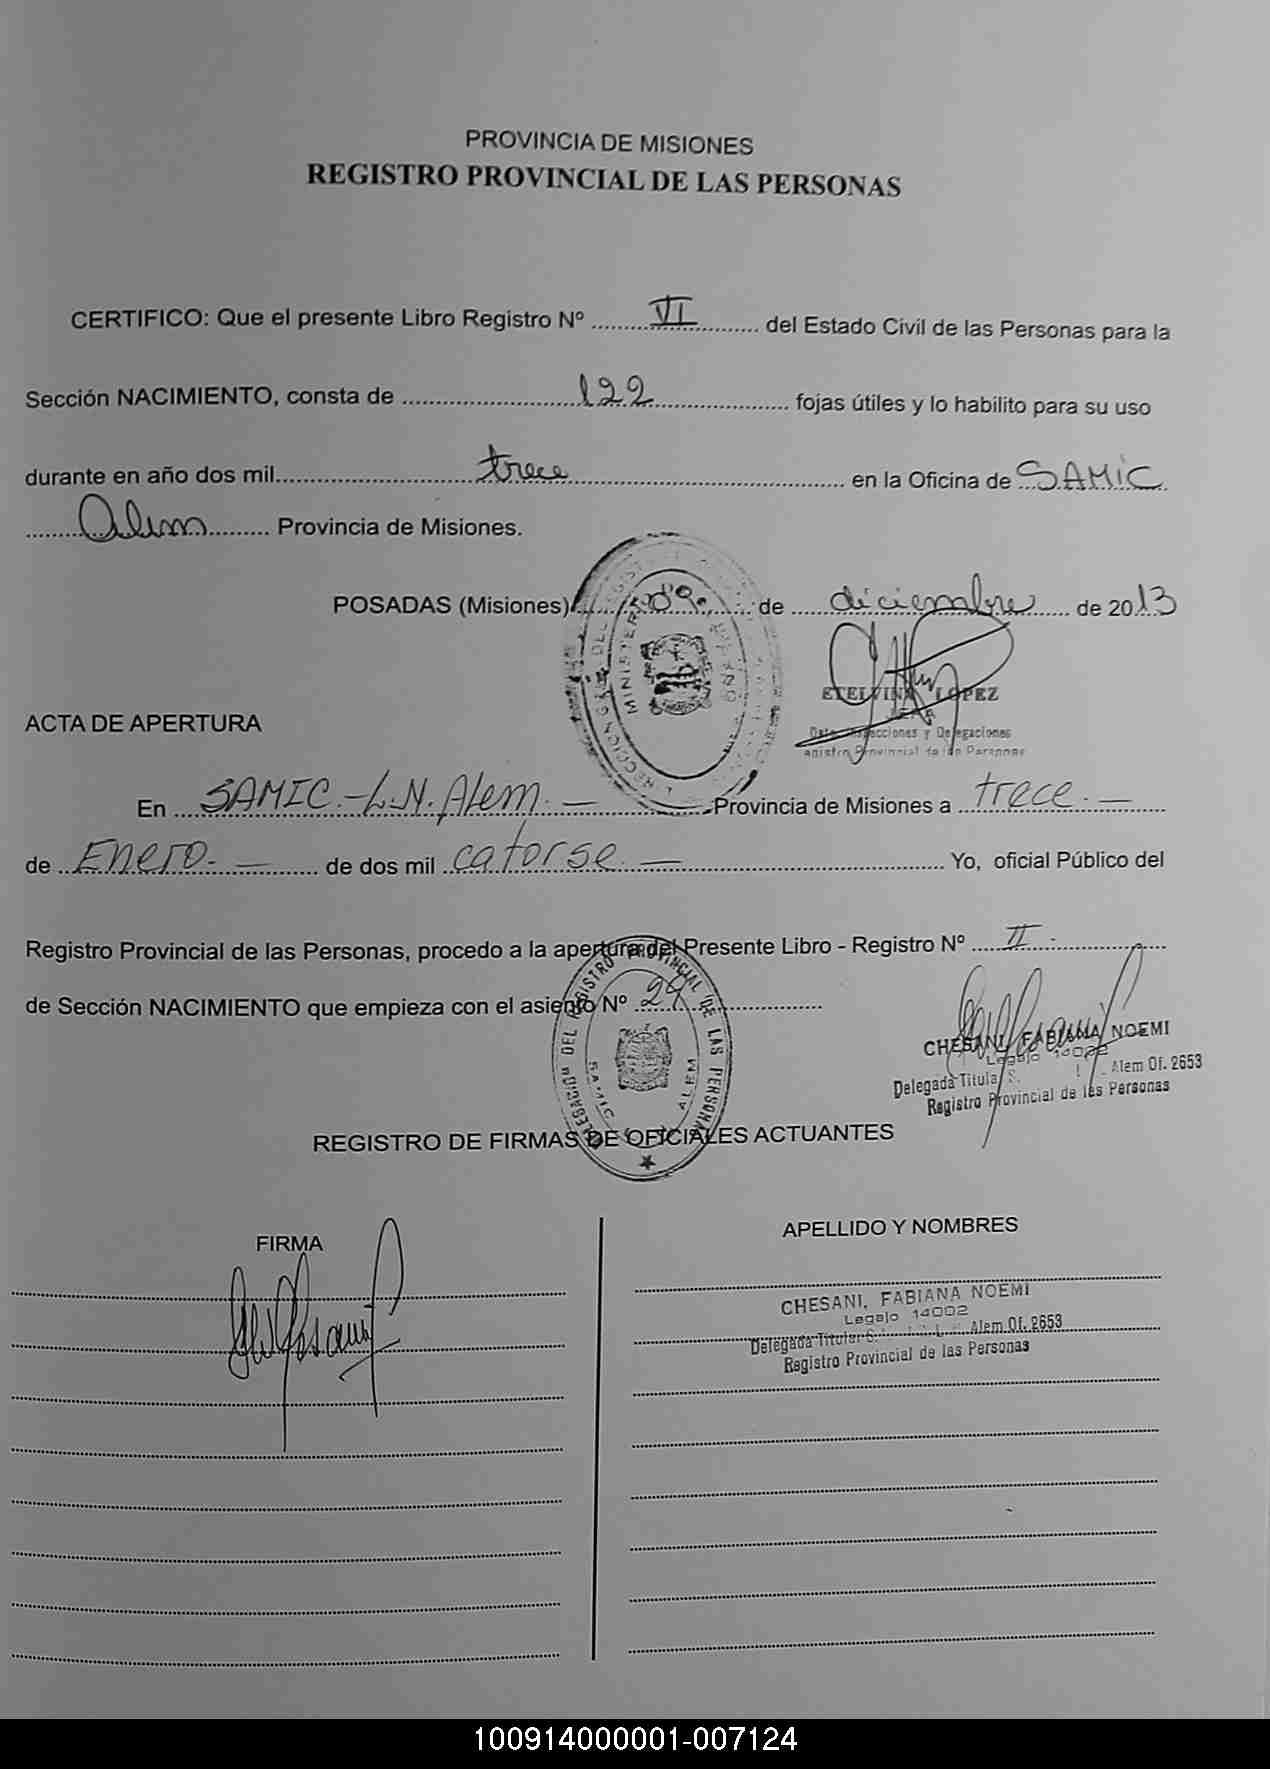 PROVINCIA DE MISIONES
REGISTRO PROVINCIAL DE LAS PERSONAS
CERTIFICO: Que el presente Libro Registro Nº ........ VI ........ del Estado Civil de las Personas para la
Sección NACIMIENTO, consta de ........ 122 ........ fojas útiles y lo habilito para su uso
durante en año dos mil ........ trece ........ en la Oficina de SAMIC
Alem ........ Provincia de Misiones.
POSADAS (Misiones) ........ de ........ diciembre ........ de 2013
ETELVINA LOPEZ
Inspecciones y Delegaciones
Registro Provincial de las Personas
ACTA DE APERTURA
En SAMIC.-L.N. Alem. — Provincia de Misiones a trece. —
de Enero. — de dos mil catorse. — Yo, oficial Público del
Registro Provincial de las Personas, procedo a la apertura del Presente Libro - Registro Nº II -
de Sección NACIMIENTO que empieza con el asiento Nº
DEL REGISTRO PROVINCIAL DE LAS PERSONAS
SAMIC ALEM
CHESANI, FABIANA NOEMI
Legajo 14002
Delegada Titular Alem Of. 2653
Registro Provincial de las Personas
REGISTRO DE FIRMAS DE OFICIALES ACTUANTES
FIRMA
APELLIDO Y NOMBRES
CHESANI, FABIANA NOEMI
Legajo 14002
Delegada Titular Alem Of. 2653
Registro Provincial de las Personas
100914000001-007124